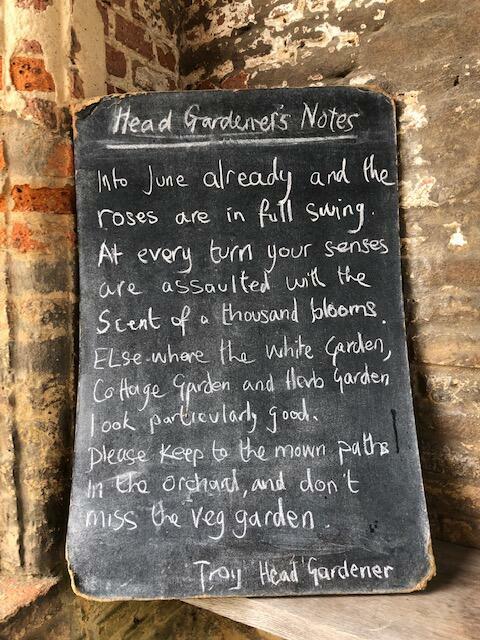 Head Gardener's Notes
Into June already and the
roses are in full swing.
At every turn your senses
are assaulted with the
Scent of a thousand blooms.
Elsewhere the white Garden,
Cottage Garden and Herb Garden
look particularly good.
please keep to the mown paths
in the orchard, and don't
miss the veg garden.
Troy Head Gardener